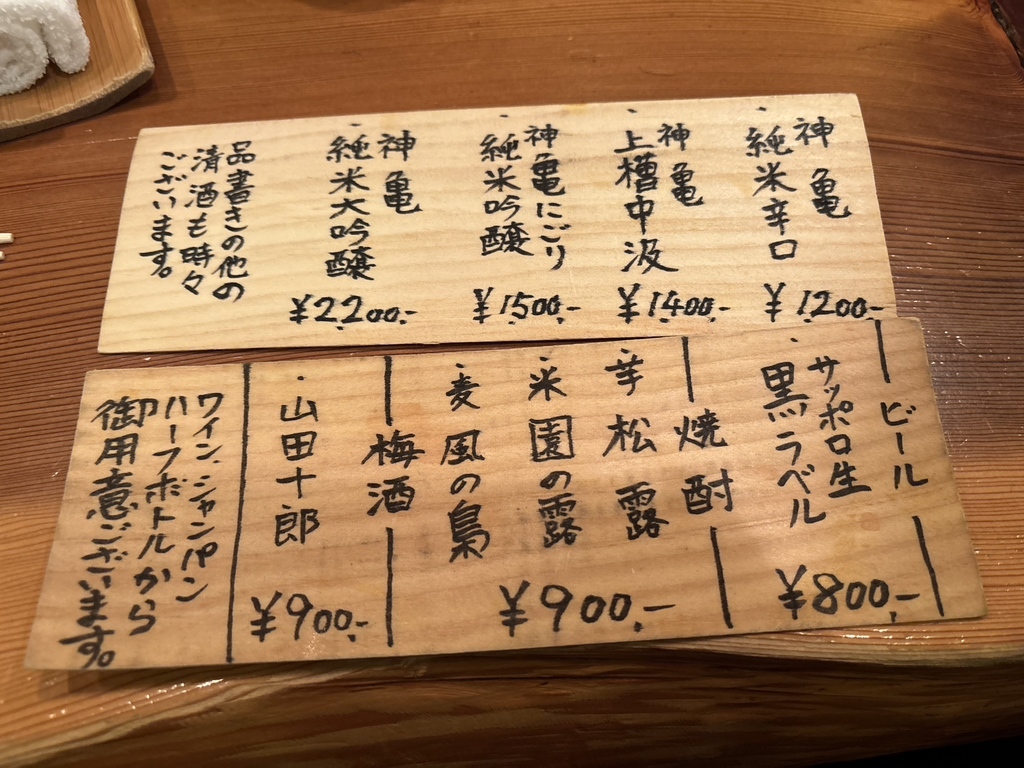 ・神亀
純米辛口
¥1200.-
・神亀
上槽中汲
¥1400.-
・神亀にごり
純米吟醸
¥1500.-
・神亀
純米大吟醸
¥2200.-
品書きの他の
清酒も時々
ございます。
ビール
サッポロ生
・黒ラベル
¥800.-
焼酎
・芋 松露
・米 園の露
・麦 風の梟
¥900.-
梅酒
・山田十郎
¥900.-
ワイン、シャンパン
ハーフボトルから
御用意ございます。